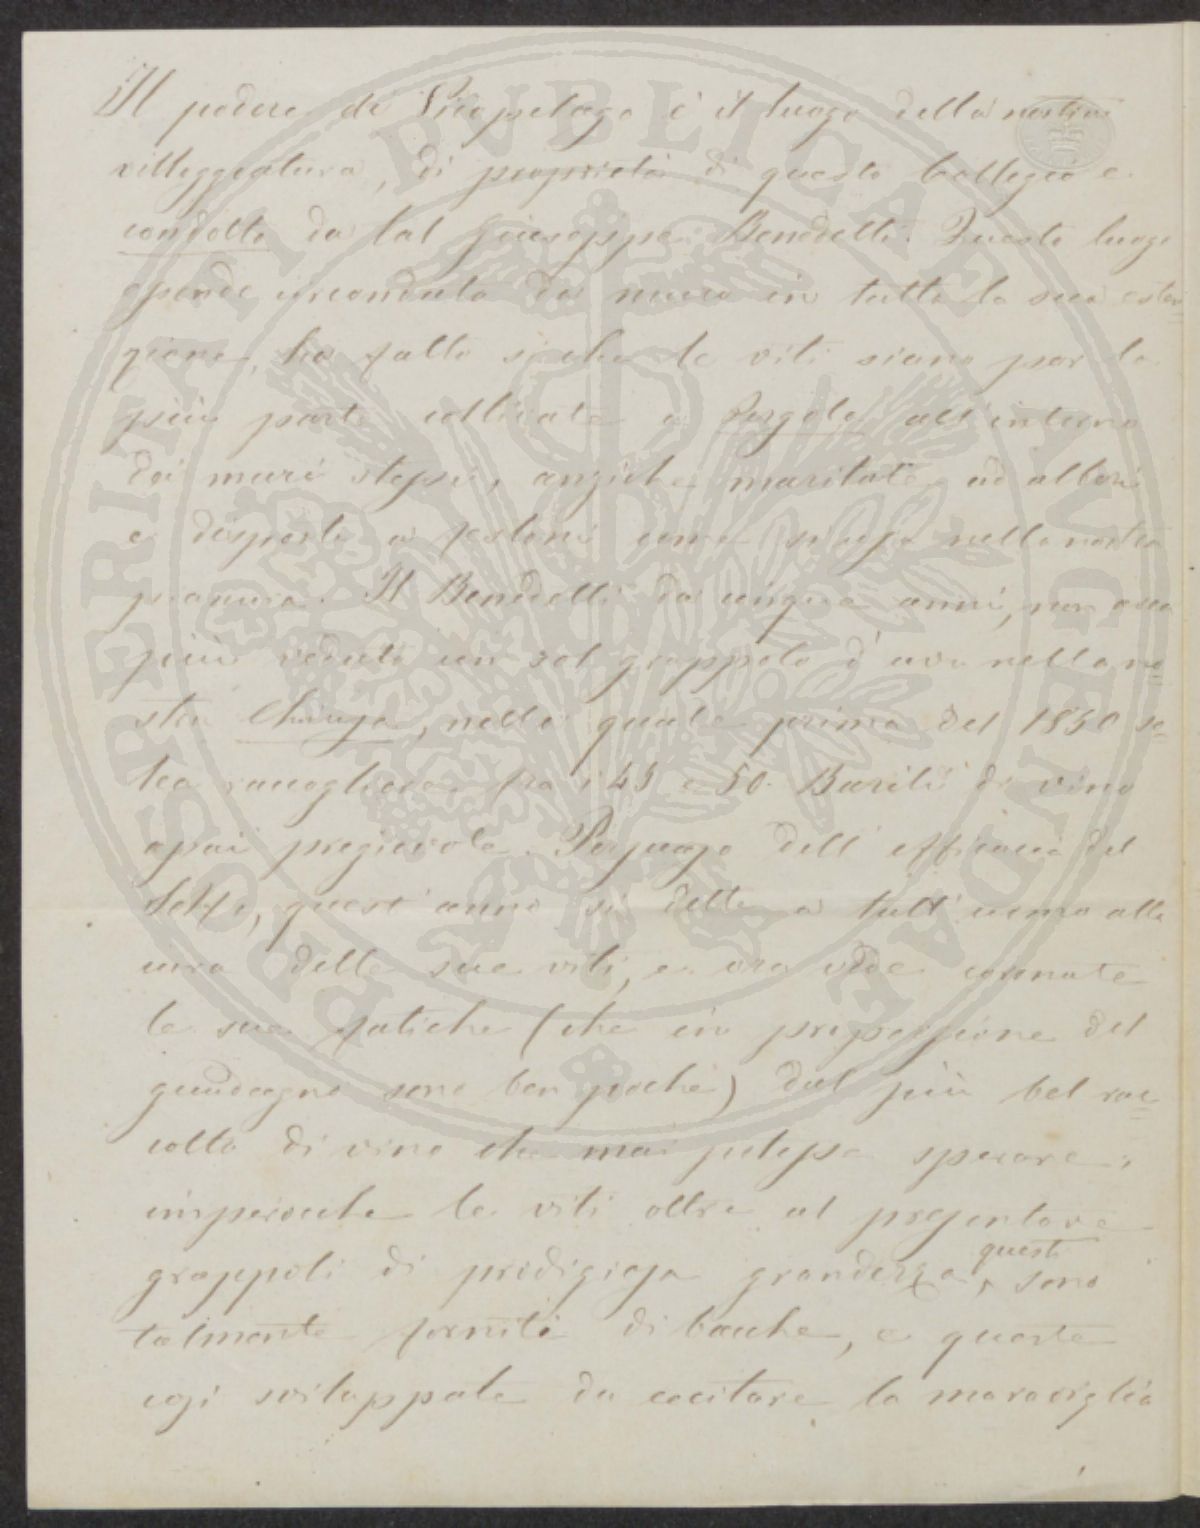 Il podere di Picopelago è il luogo della nostra
villeggiatura, di proprietà di questo Collegio e
condotto da tal Giuseppe Benedetti. Questo luogo
essendo circondato da muro in tutta la sua esten=
zione, ha fatto si che le viti siano per la
più parte coltivate a Pergola all'interno
dei muri stessi, anziche maritate ad alberi
e disposte a festoni come si usa nella nostra
pianura. Il Benedetti da cinque anni, non avea
più veduto un sol grappolo d'uva nella no=
stra Chiusa, nella quale prima del 1850 so=
lea raccogliere fra i 45 e 50. Barili di vino
assai pregievole. Persuaso dell'efficacia del
Solfo, quest'anno si dette a tutt'uomo alla
cura delle sue viti, e ora vede coronate
le sue fatiche (che in proporzione del
guadagno sono ben poche) dal più bel rac=
colto di vino che mai potesse sperare;
imperocche le viti oltre al presentare
grappoli di prodigiosa grandezza, questi sono
talmente forniti di bacche, e queste
così sviluppate da eccitare la maraviglia
PROSPERITATI PVBLICAE AVGENDAE